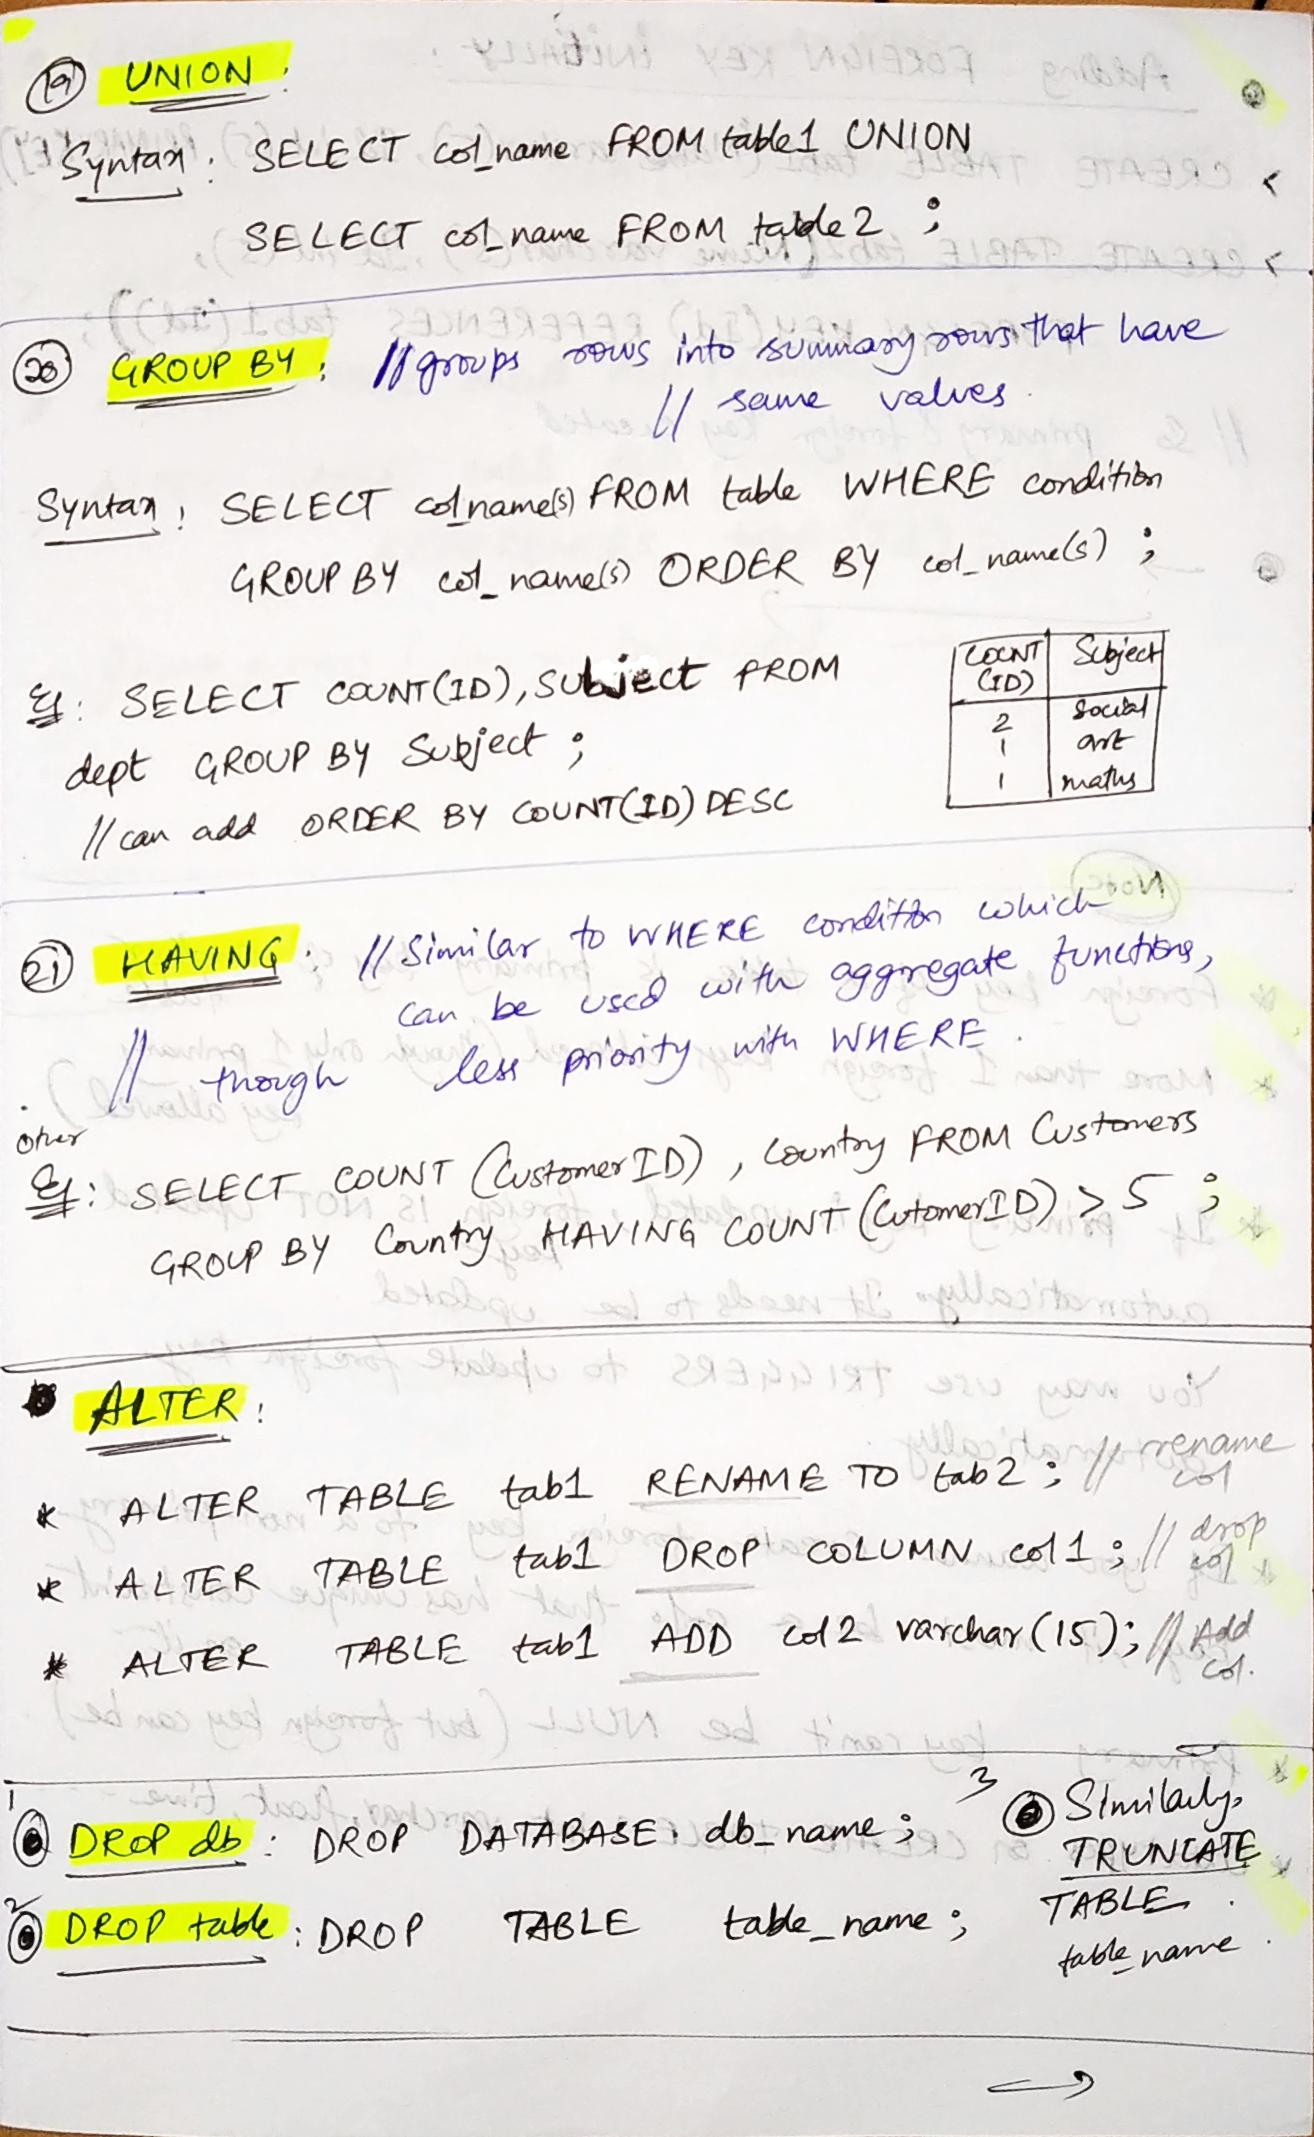 19 UNION :
Syntax : SELECT col_name FROM table1 UNION
SELECT col_name FROM table2 ;
20 GROUP BY : // groups rows into summary rows that have
// same values.
Syntax : SELECT col_name(s) FROM table WHERE condition
GROUP BY col_name(s) ORDER BY col_name(s) ;
Eg : SELECT COUNT(ID), Subject FROM
dept GROUP BY Subject ;
// can add ORDER BY COUNT(ID) DESC
COUNT (ID) Subject
2 social
1 art
1 maths
21 HAVING : // Similar to WHERE condition which
can be used with aggregate functions,
// though less priority with WHERE.
other
Eg : SELECT COUNT (CustomerID) , Country FROM Customers
GROUP BY Country HAVING COUNT (CutomerID) > 5 ;
ALTER :
* ALTER TABLE tab1 RENAME TO tab2 ; // rename col
* ALTER TABLE tab1 DROP COLUMN col1 ; // drop col
* ALTER TABLE tab1 ADD col2 varchar(15); // Add col.
1 DROP db : DROP DATABASE db_name ;
2 DROP table : DROP TABLE table_name ;
3 Similarly,
TRUNCATE
TABLE
table_name.